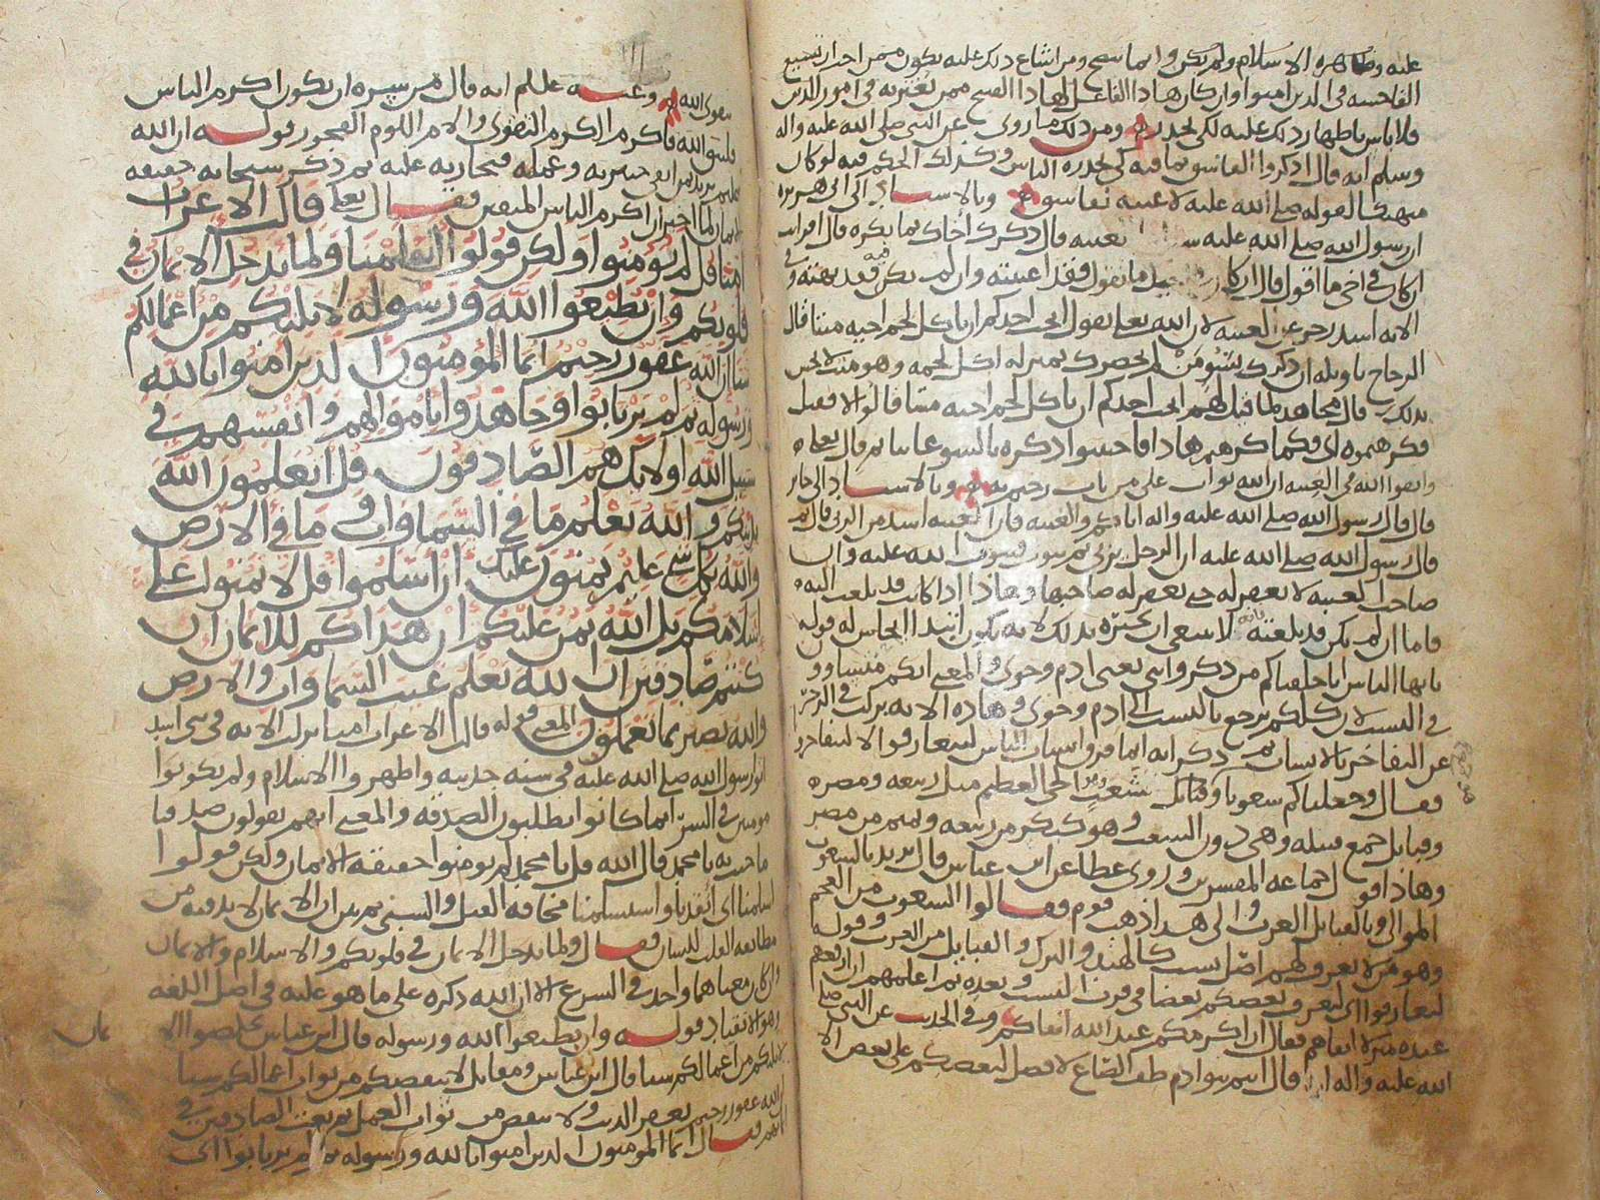 عليه وظاهره الاسلام ولم يكن وانما سمع ومن اشاع ذلك عليه يكون ممن احب ان تشيع
الفاحشه في الذين امنوا وان كان هاذا الفاعل لهاذا القبيح ممن يغتر به في امور الدين
فلا باس باظهار ذلك عليه لكي يحذر ومن ذلك ما روي عن النبي صلى الله عليه واله
وسلم انه قال اذكروا الفاسق بما فيه كي يحذره الناس وكذلك الحكم فيه لو كان
متهتكا لقوله صلى الله عليه لا غيبه لفاسق وبالاسناد الى ابي هريره
ان رسول الله صلى الله عليه بغيبه قال ذكرك اخاك بما يكره قال افرايت
ان كان في اخي ما اقول قال ان كان ما تقول فقد اغتبته وان لم يكن فيه فقد بهته وفي
الايه اشد زجر عن الغيبه لان الله تعلى يقول ايحب احدكم ان ياكل لحم اخيه ميتا قال
الزجاج تاويله ان ذكرك بسوء من لم يحضرك بمنزله اكل لحمه وهو ميت لا يحس
بذلك قال مجاهد لما قيل لهم ايحب احدكم ان ياكل لحم اخيه ميتا قالوا لا فقيل
فكرهتموه اي فكما كرهتم هاذا فاجتنبوا ذكره بالسوء غايبا ثم قال تعلى
واتقوا الله في الغيبه ان الله تواب على من تاب رحيم به وبالاسناد الى جابر
قال قال رسول الله صلى الله عليه واله اياكم والغيبه فان الغيبه اشد من الزنى قال ثم
قال رسول الله صلى الله عليه ان الرجل يزني ثم يتوب فيتوب الله عليه وان
صاحب الغيبه لا يغفر له حتى يغفر له صاحبها وهاذا اذا كانت قد بلغت اليه
فاما ان لم يكن قد بلغته فانه لا ينبغي ان يخبره بذلك لانه يكون ابتدا ايحاش له قوله
يايها الناس انا خلقناكم من ذكر وانثى يعني ادم وحوى والمعنى انكم متساوون
في النسب لان كلكم يرجع بالنسب الى ادم وحوى وهاذه الايه نزلت في الزجر
عن التفاخر بالانساب ثم ذكر انه انما فرق انساب الناس ليتعارفوا لا ليتفاخروا
فقال وجعلناكم شعوبا وقبايل شعب الحي العظيم مثل ربيعه ومضر
وقبايل جمع قبيله وهي دون الشعب وهو كبكر من ربيعه وتميم من مضر
وهاذا قول جماعه المفسرين وروى عطا عن ابن عباس قال يريد بالشعوب
الموالي وبالقبايل العرب والى هذا ذهب قوم فقالوا الشعوب من العجم
وهو من لا يعرف لهم اصل نسب كالهند والترك والقبايل من العرب وقوله
لتعارفوا اي ليعرف بعضكم بعضا في قرب النسب وبعده ثم اعلمهم ان ارفعهم
عنده منزله اتقاهم فقال ان اكرمكم عند الله اتقاكم وفي الحديث عن النبي صلى
الله عليه واله انه قال انتم بنوا ادم طف الصاع لا فضل لبعضكم على بعض الا
بتقوى الله وعنه عليلم انه قال من سره ان يكون اكرم الناس
فليتق الله فاكرم الكرم التقوى والام اللوم الفجور قوله ان الله
عليم خبير يريد بمن اتقى خبير به وعمله فيجازيه عليه ثم ذكر سبحانه حقيقه
الايمان لما اخبر ان اكرم الناس المتقين فقال تعلى قالت الاعراب
امنا قل لم تومنوا ولكن قولوا اسلمنا ولما يدخل الايمان في
قلوبكم وان تطيعوا الله ورسوله لا يلتكم من اعمالكم
شيا ان الله غفور رحيم انما المومنون الذين امنوا بالله
ورسوله ثم لم يرتابوا وجاهدوا باموالهم وانفسهم في
سبيل الله اولايك هم الصادقون قل اتعلمون الله
بدينكم والله يعلم ما في السماوات وما في الارض
والله بكل شي عليم يمنون عليك ان اسلموا قل لا تمنوا علي
اسلامكم بل الله يمن عليكم ان هداكم للايمان ان
كنتم صادقين ان الله يعلم غيب السماوات والارض
والله بصير بما تعملون المعنى قوله قالت الاعراب امنا نزلت الايه في بني اسد
اتوا رسول الله صلى الله عليه في سنه جدبه واظهروا الاسلام ولم يكونوا
مومنين في السر انما كانوا يطلبون الصدقه والمعنى انهم يقولون صدقنا
ما جيت به يا محمد قال الله قل يا محمد لم تومنوا حقيقه الايمان ولكن قولوا
اسلمنا اي انقدنا واستسلمنا مخافه القتل والسبي ثم بين ان الايمان لا بد فيه من
مطابقه القلب للسان فقال ولما يدخل الايمان في قلوبكم والاسلام والايمان
وان كان معناهما واحد في الشرع الا ان الله ذكره على ما هو عليه في اصل اللغه
وهو الانقياد قوله وان تطيعوا الله ورسوله قال ابن عباس تخلصوا الا
يمان
لا يلتكم من اعمالكم شيا قال ابن عباس ومقاتل لا ينقصكم من ثواب اعمالكم شيا
ان الله غفور رحيم يغفر الذنب ولا ينقص من ثواب العمل ثم نعت الصادقين في
ايمانهم فقال انما المومنون الذين امنوا بالله ورسوله ثم لم يرتابوا اي